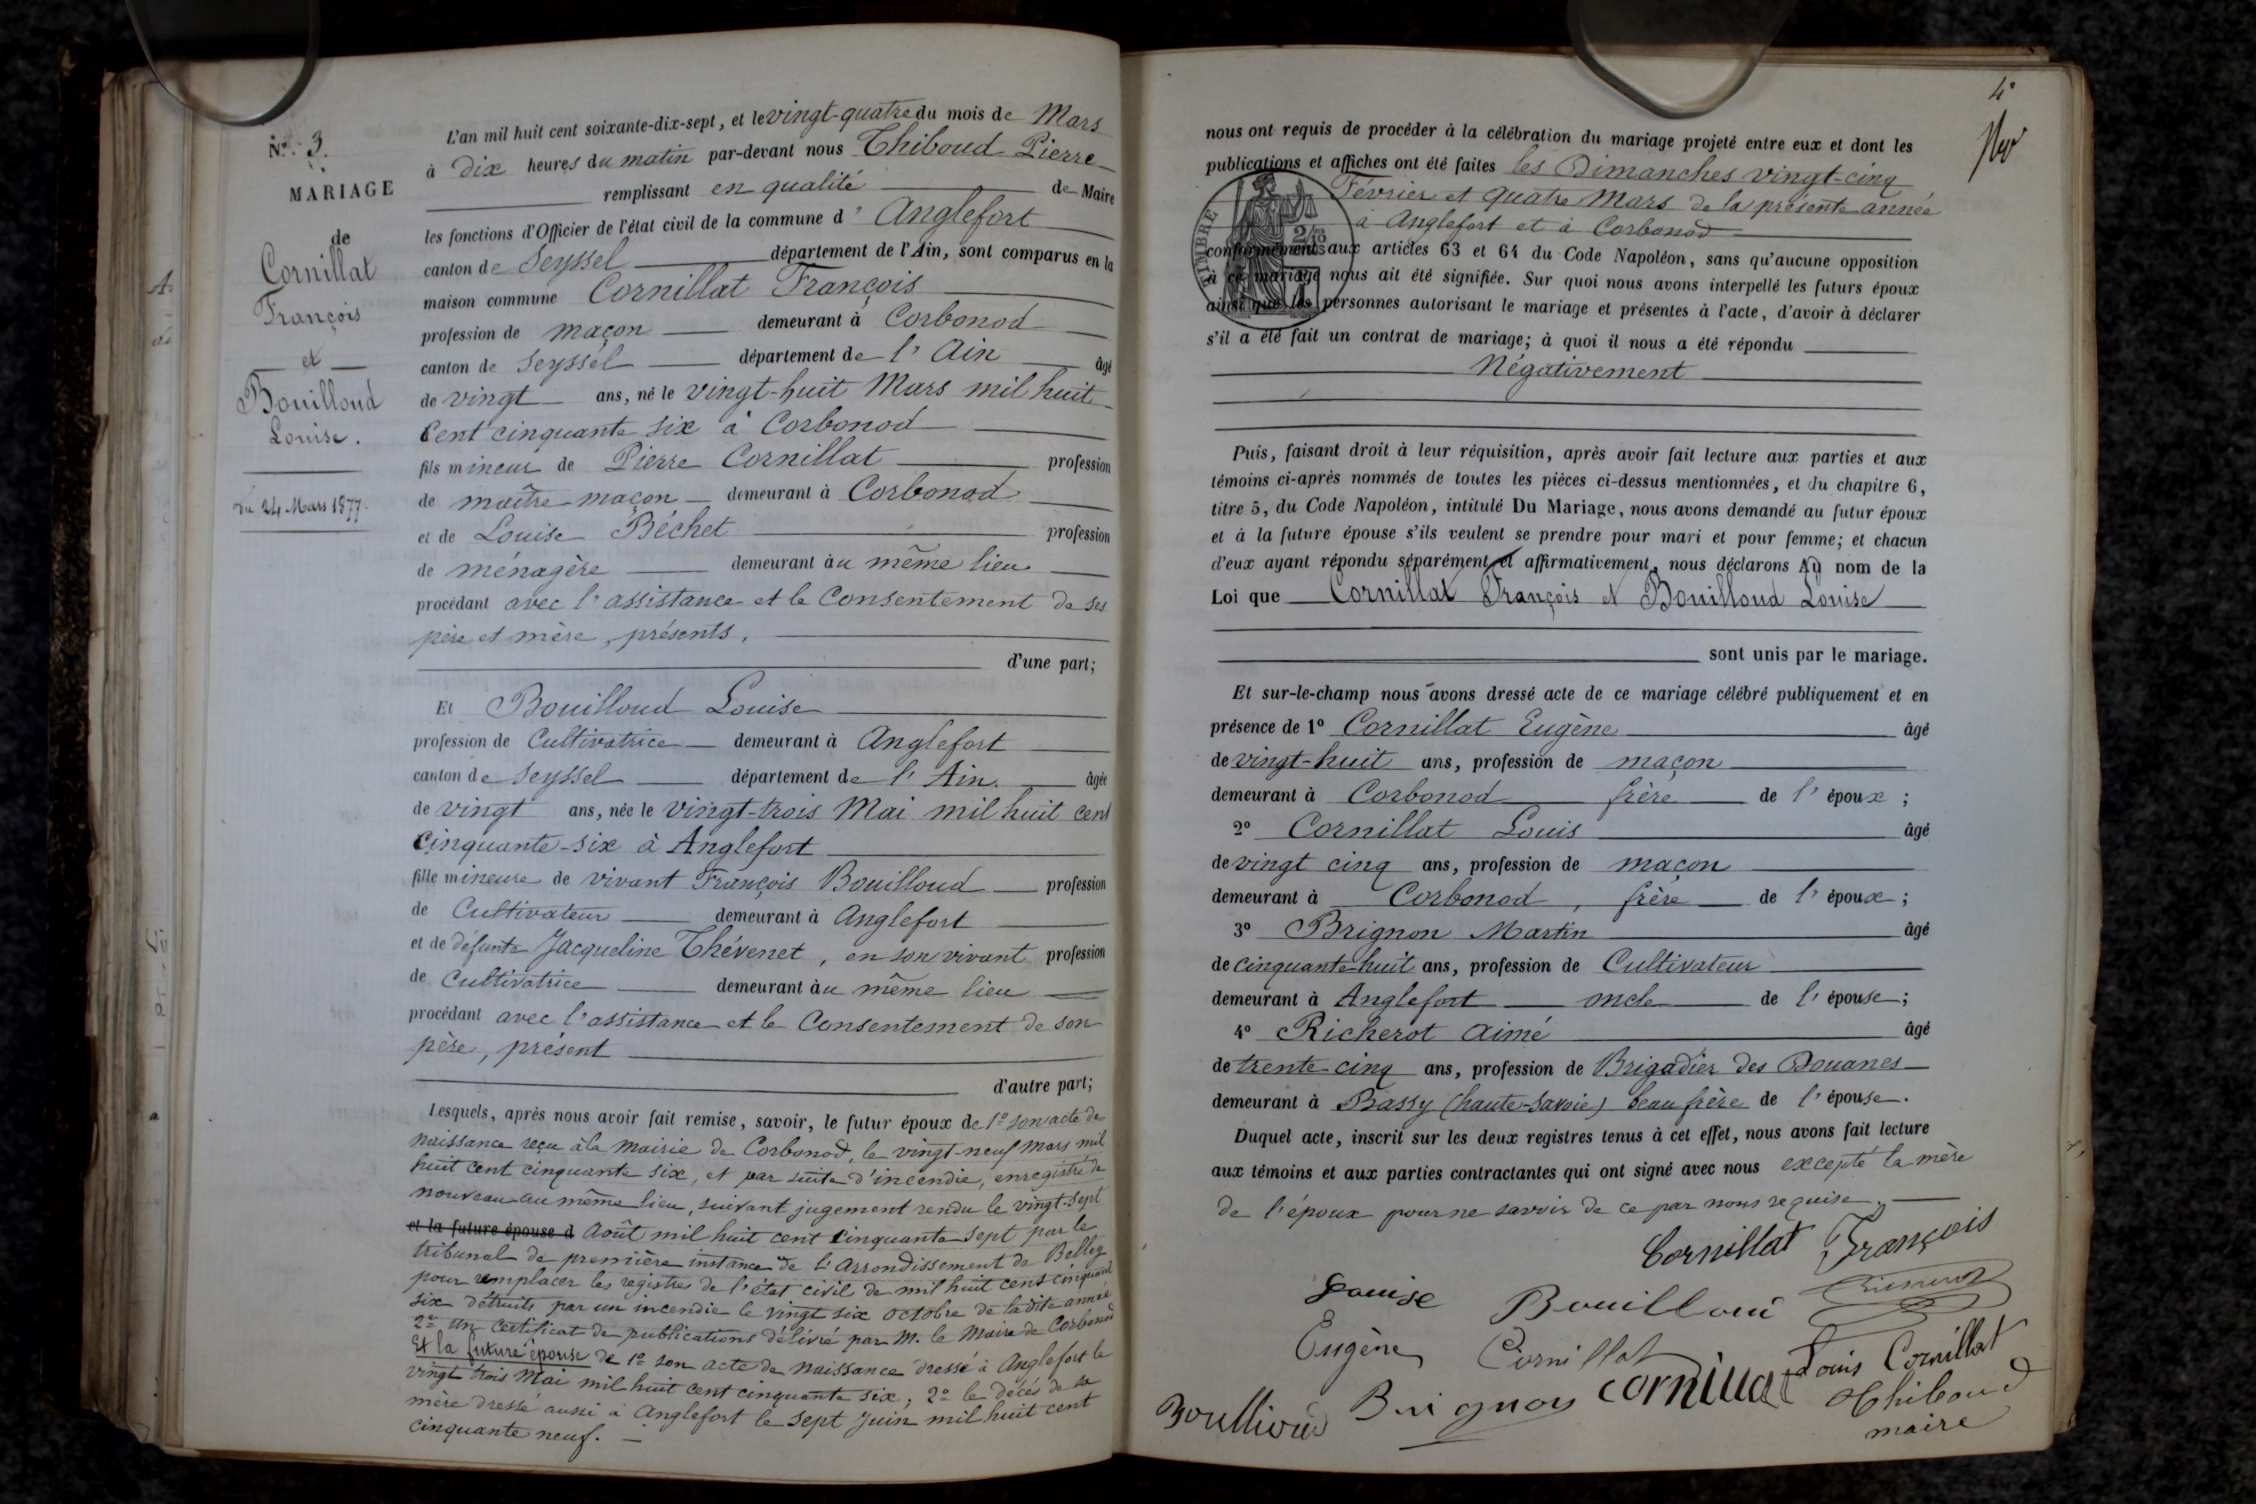 N° 3.
MARIAGE
de
Cornillat
François
et
Bouilloud
Louise.
du 24 Mars 1877.
L'an mil huit cent soixante-dix-sept, et le vingt-quatre du mois de Mars
à dix heures du matin par-devant nous Thiboud Pierre
remplissant en qualité de Maire
les fonctions d'Officier de l'état civil de la commune d' Anglefort
canton de Seyssel département de l'Ain, sont comparus en la
maison commune Cornillat François
profession de maçon demeurant à Corbonod
canton de Seyssel département de l'Ain âgé
de vingt ans, né le vingt-huit Mars mil huit
Cent cinquante six à Corbonod
fils mineur de Pierre Cornillat profession
de maître-maçon demeurant à Corbonod
et de Louise Béchet profession
de ménagère demeurant au même lieu
procédant avec l'assistance et le Consentement de ses
père et mère, présents,
d'une part;
Et Bouilloud Louise
profession de Cultivatrice demeurant à Anglefort
canton de Seyssel département de l'Ain. âgée
de vingt ans, née le vingt-trois Mai mil huit cent
Cinquante-six à Anglefort
fille mineure de vivant François Bouilloud profession
de Cultivateur demeurant à Anglefort
et de défunte Jacqueline Thévenet, en son vivant profession
de Cultivatrice demeurant au même lieu
procédant avec l'assistance et le Consentement de son
père, présent
d'autre part;
Lesquels, après nous avoir fait remise, savoir, le futur époux de 1° son acte de
naissance reçu à la Mairie de Corbonod, le vingt-neuf Mars mil
huit cent cinquante six, et par suite d'incendie, enregistré de
nouveau au même lieu, suivant jugement rendu le vingt-sept
et la future épouse d Août mil huit cent cinquante sept par le
tribunal de première instance de l'Arrondissement de Belley
pour remplacer les registres de l'état civil de mil huit cent cinquante
six détruits par un incendie le vingt six octobre de ladite année
2° Un Certificat de publications délivré par M. le Maire de Corbonod
Et la future épouse de 1° son acte de naissance dressé à Anglefort le
vingt trois Mai mil huit cent cinquante six; 2° le décès de sa
mère dressé aussi à Anglefort le sept Juin mil huit cent
cinquante neuf.
4°
nous ont requis de procéder à la célébration du mariage projeté entre eux et dont les
publications et affiches ont été faites les Dimanches vingt-cinq
Février et quatre Mars de la présente année
à Anglefort et à Corbonod
TIMBRE
conformément aux articles 63 et 64 du Code Napoléon, sans qu'aucune opposition
à ce mariage nous ait été signifiée. Sur quoi nous avons interpellé les futurs époux
ainsi que les personnes autorisant le mariage et présentes à l'acte, d'avoir à déclarer
s'il a été fait un contrat de mariage; à quoi il nous a été répondu
Négativement
Puis, faisant droit à leur réquisition, après avoir fait lecture aux parties et aux
témoins ci-après nommés de toutes les pièces ci-dessus mentionnées, et du chapitre 6,
titre 5, du Code Napoléon, intitulé Du Mariage, nous avons demandé au futur époux
et à la future épouse s'ils veulent se prendre pour mari et pour femme; et chacun
d'eux ayant répondu séparément et affirmativement, nous déclarons Au nom de la
Loi que Cornillat François et Bouilloud Louise
sont unis par le mariage.
Et sur-le-champ nous avons dressé acte de ce mariage célébré publiquement et en
présence de 1° Cornillat Eugène âgé
de vingt-huit ans, profession de maçon
demeurant à Corbonod frère de l'époux;
2° Cornillat Louis âgé
de vingt cinq ans, profession de maçon
demeurant à Corbonod, frère de l'époux;
3° Brignon Martin âgé
de cinquante-huit ans, profession de Cultivateur
demeurant à Anglefort oncle de l'épouse;
4° Richerot Aimé âgé
de trente-cinq ans, profession de Brigadier des Douanes
demeurant à Bassy (haute-Savoie) beau frère de l'épouse.
Duquel acte, inscrit sur les deux registres tenus à cet effet, nous avons fait lecture
aux témoins et aux parties contractantes qui ont signé avec nous excepté la mère
de l'époux pour ne savoir de ce par nous requise,
Cornillat François
Louise Bouilloud
Eugène Cornillat
Louis Cornillat
Bouilloud Brignon cornillat
Thiboud
maire